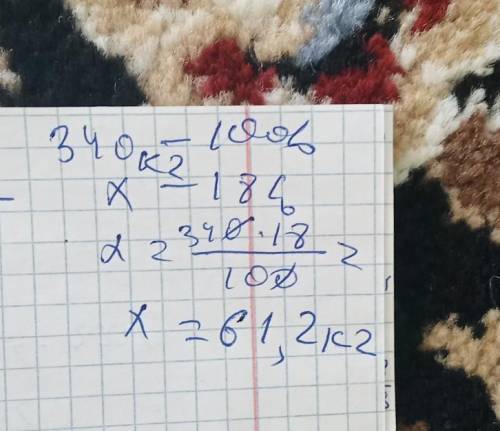 340кг – 100%
x – 18%
x = 340·18/100 =
x = 61,2кг